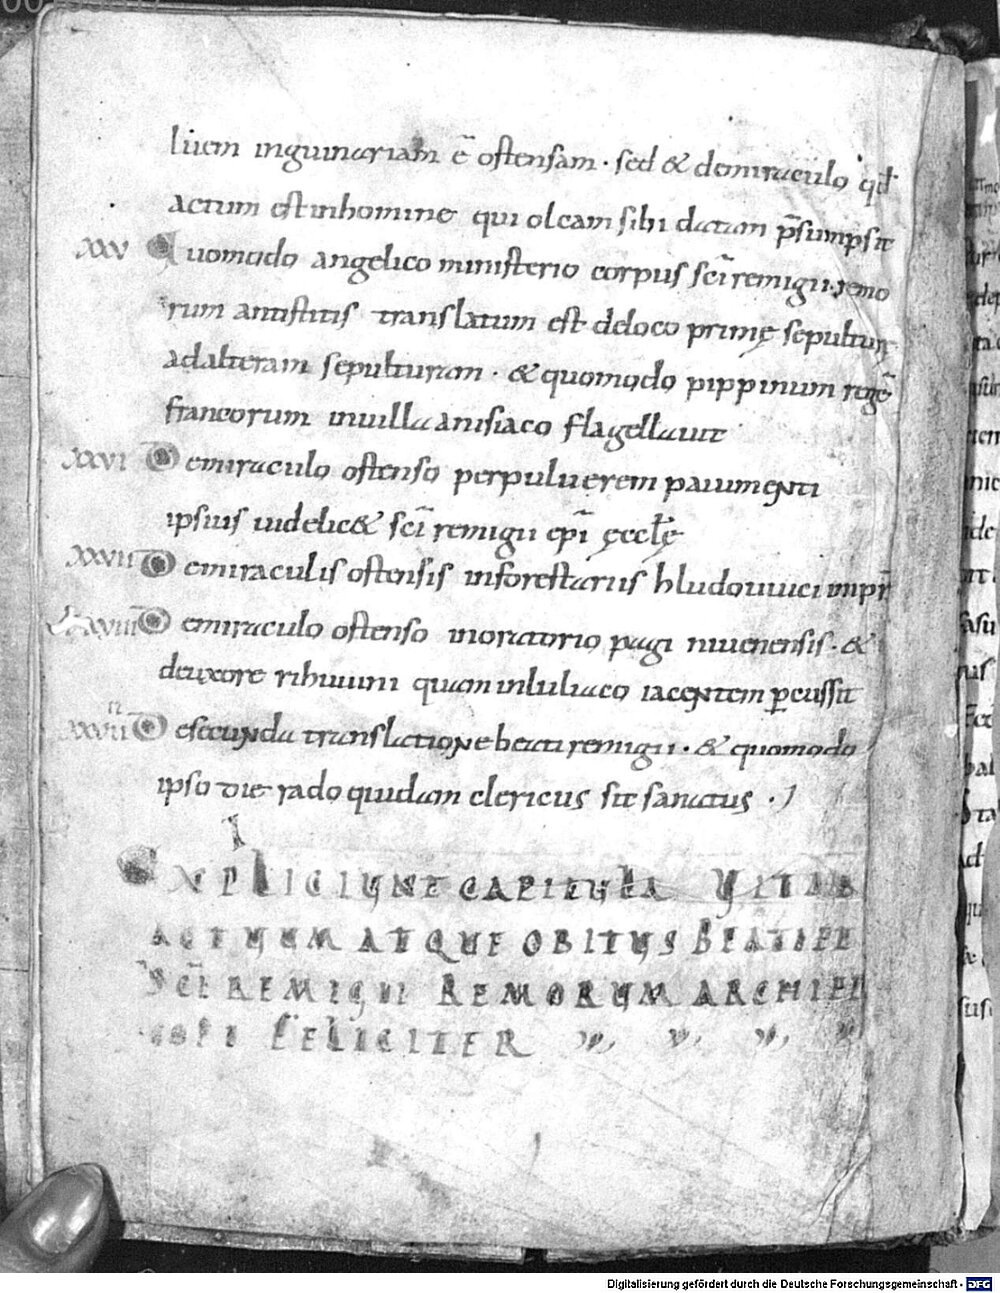 luem inguinariam ē ostensam · sed & demiraculo qd
actum est inhomine qui oleam sibi datam p̄sumpsit
XXV Quomodo angelico ministerio corpus sc̄i remigii · remo
rum antistitis translatum est deloco primę sepultur
adalteram sepulturam · & quomodo pippinum regē
francorum inuilla anisiaco flagellauit
XXVI Demiraculo ostenso perpuluerem pauimenti
ipsius uidelic& sc̄i remigii ep̄i ęcclę
XXVII Demiraculis ostensis inforestariis hludouuici imp̄r
Demiraculo ostenso inoratorio pagi niuenensis · &
deuxore ribuuini quam inluliaco iacentem ꝑcussit
Desecunda translatione beati remigii · & quomodo
ipso die rado quidam clericus sit sanatus ·
EXPLICIUNT CAPITULA VITAE
ACTUUM ATQUE OBITUS BEATI
SC̄I REMIGII REMORUM ARCHIEPI
SCOPI FELICITER
Digitalisierung gefördert durch die Deutsche Forschungsgemeinschaft - DFG